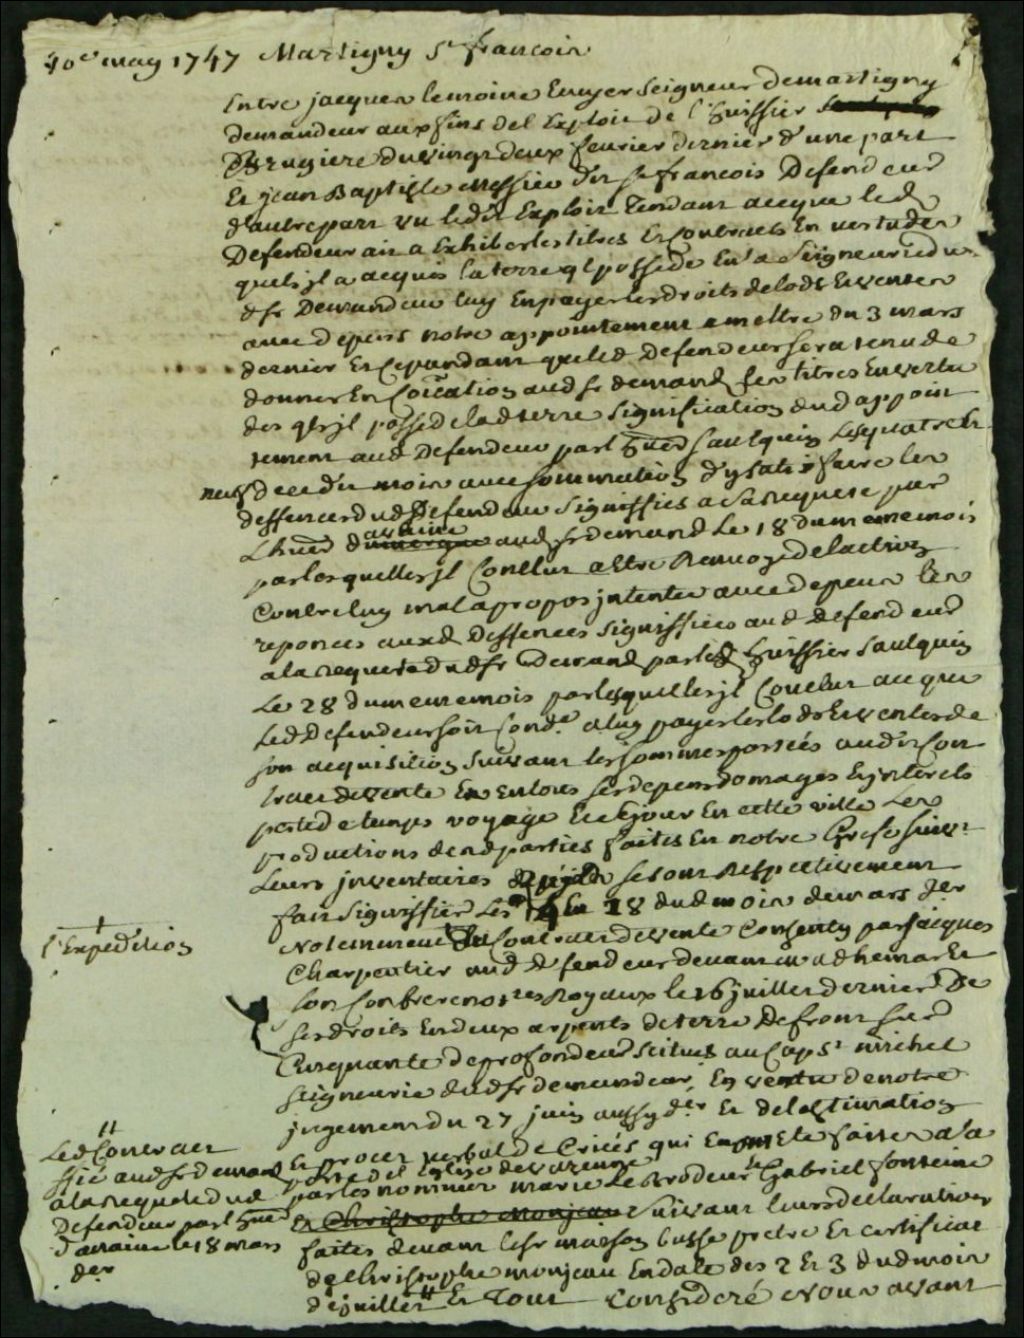 10e may 1747 Martigny St francois
Entre jacques lemoine Ecuyer Seigneur demartigny
demandeur aux fins del Exploit de l'huissier
Brugiere du vingt deux fevrier dernier d'une part
Et jean Baptiste Messieu dit St francois Defendeur
d'autre part vu led. Exploit Tendant aceque led.
Defendeur ait a Exhiber les titres Et Contracts En vertu des
quels jl a acquis la terre ql possede En la Seigneurie du
d. sr Demandeur luy En payer les droits de lods Et ventes
avec depens notre appointement a mettre du 3 mars
dernier Et Cependant que led Defendeur sera tenu de
donner En Coication aud sr demand. ses titres En vertu
des qls jl possede lad terre Signification dud appoin
tement aud Defendeur par l'huer Saulquin
neuf dud. moin avec sommation d'y satisfaire les
deffences dud Defendeur Signiffiées a sa requete par
L'huer daunaine aud sr demand Le 18 du meme mois
par lesquelles jl Conclut a Etre Renvoyé delaction
Contre luy mal a propos jntentée avec depens les
reponces auxd. deffences Signiffiées aud defendeur
a la requete dud sr Demand. par led. huissier Saulquin
Le 28 du meme mois par lesquelles jl Conclut ace que
Led Defendeur soit Cond.e a luy payer les lods Et ventes de
son acquisition Suivant les sommes portées aud. Con
tract de vente Et En tous ses depens domages Et jnterets
perte de temps voyage Et sejour En cette ville Les
productions desd parties faites En notre Greffe suivt
Leurs jnventaires se sont Respectivement
fait Signiffier Les 18 dud mois de mars der
Notemment du Contract de vente Consenty par jacques
Charpentier aud defendeur devant me adhemar Et
son Confrere nores Royaux le 16 juillet dernier De
ses droits En deux arpents de terre De front sur
Cinquante de profondeur scitués au Cap St michel
Seigneurie dud sr demandeur, En vertu de notre
jugement du 27 juin aussy der Et de l'estimation
Et procez verbal de Criées qui En ont Eté faites a la
porte del Eglise de varenne
par les nommés marie Le Brodeur Et Gabriel fonteine
Et Christophe Monjeau Suivant leurs declarations
faites devant le sr maison basse pretre Et certificat
de Christophe monjeau En date des 2 Et 3 dud mois
de juillet Et Tout Consideré Nous avant
l'Expedition
Led. Contract
sfié aud sr demand
a la requete dud
Defendeur par l'huer
Daunaine le 18 mars
der